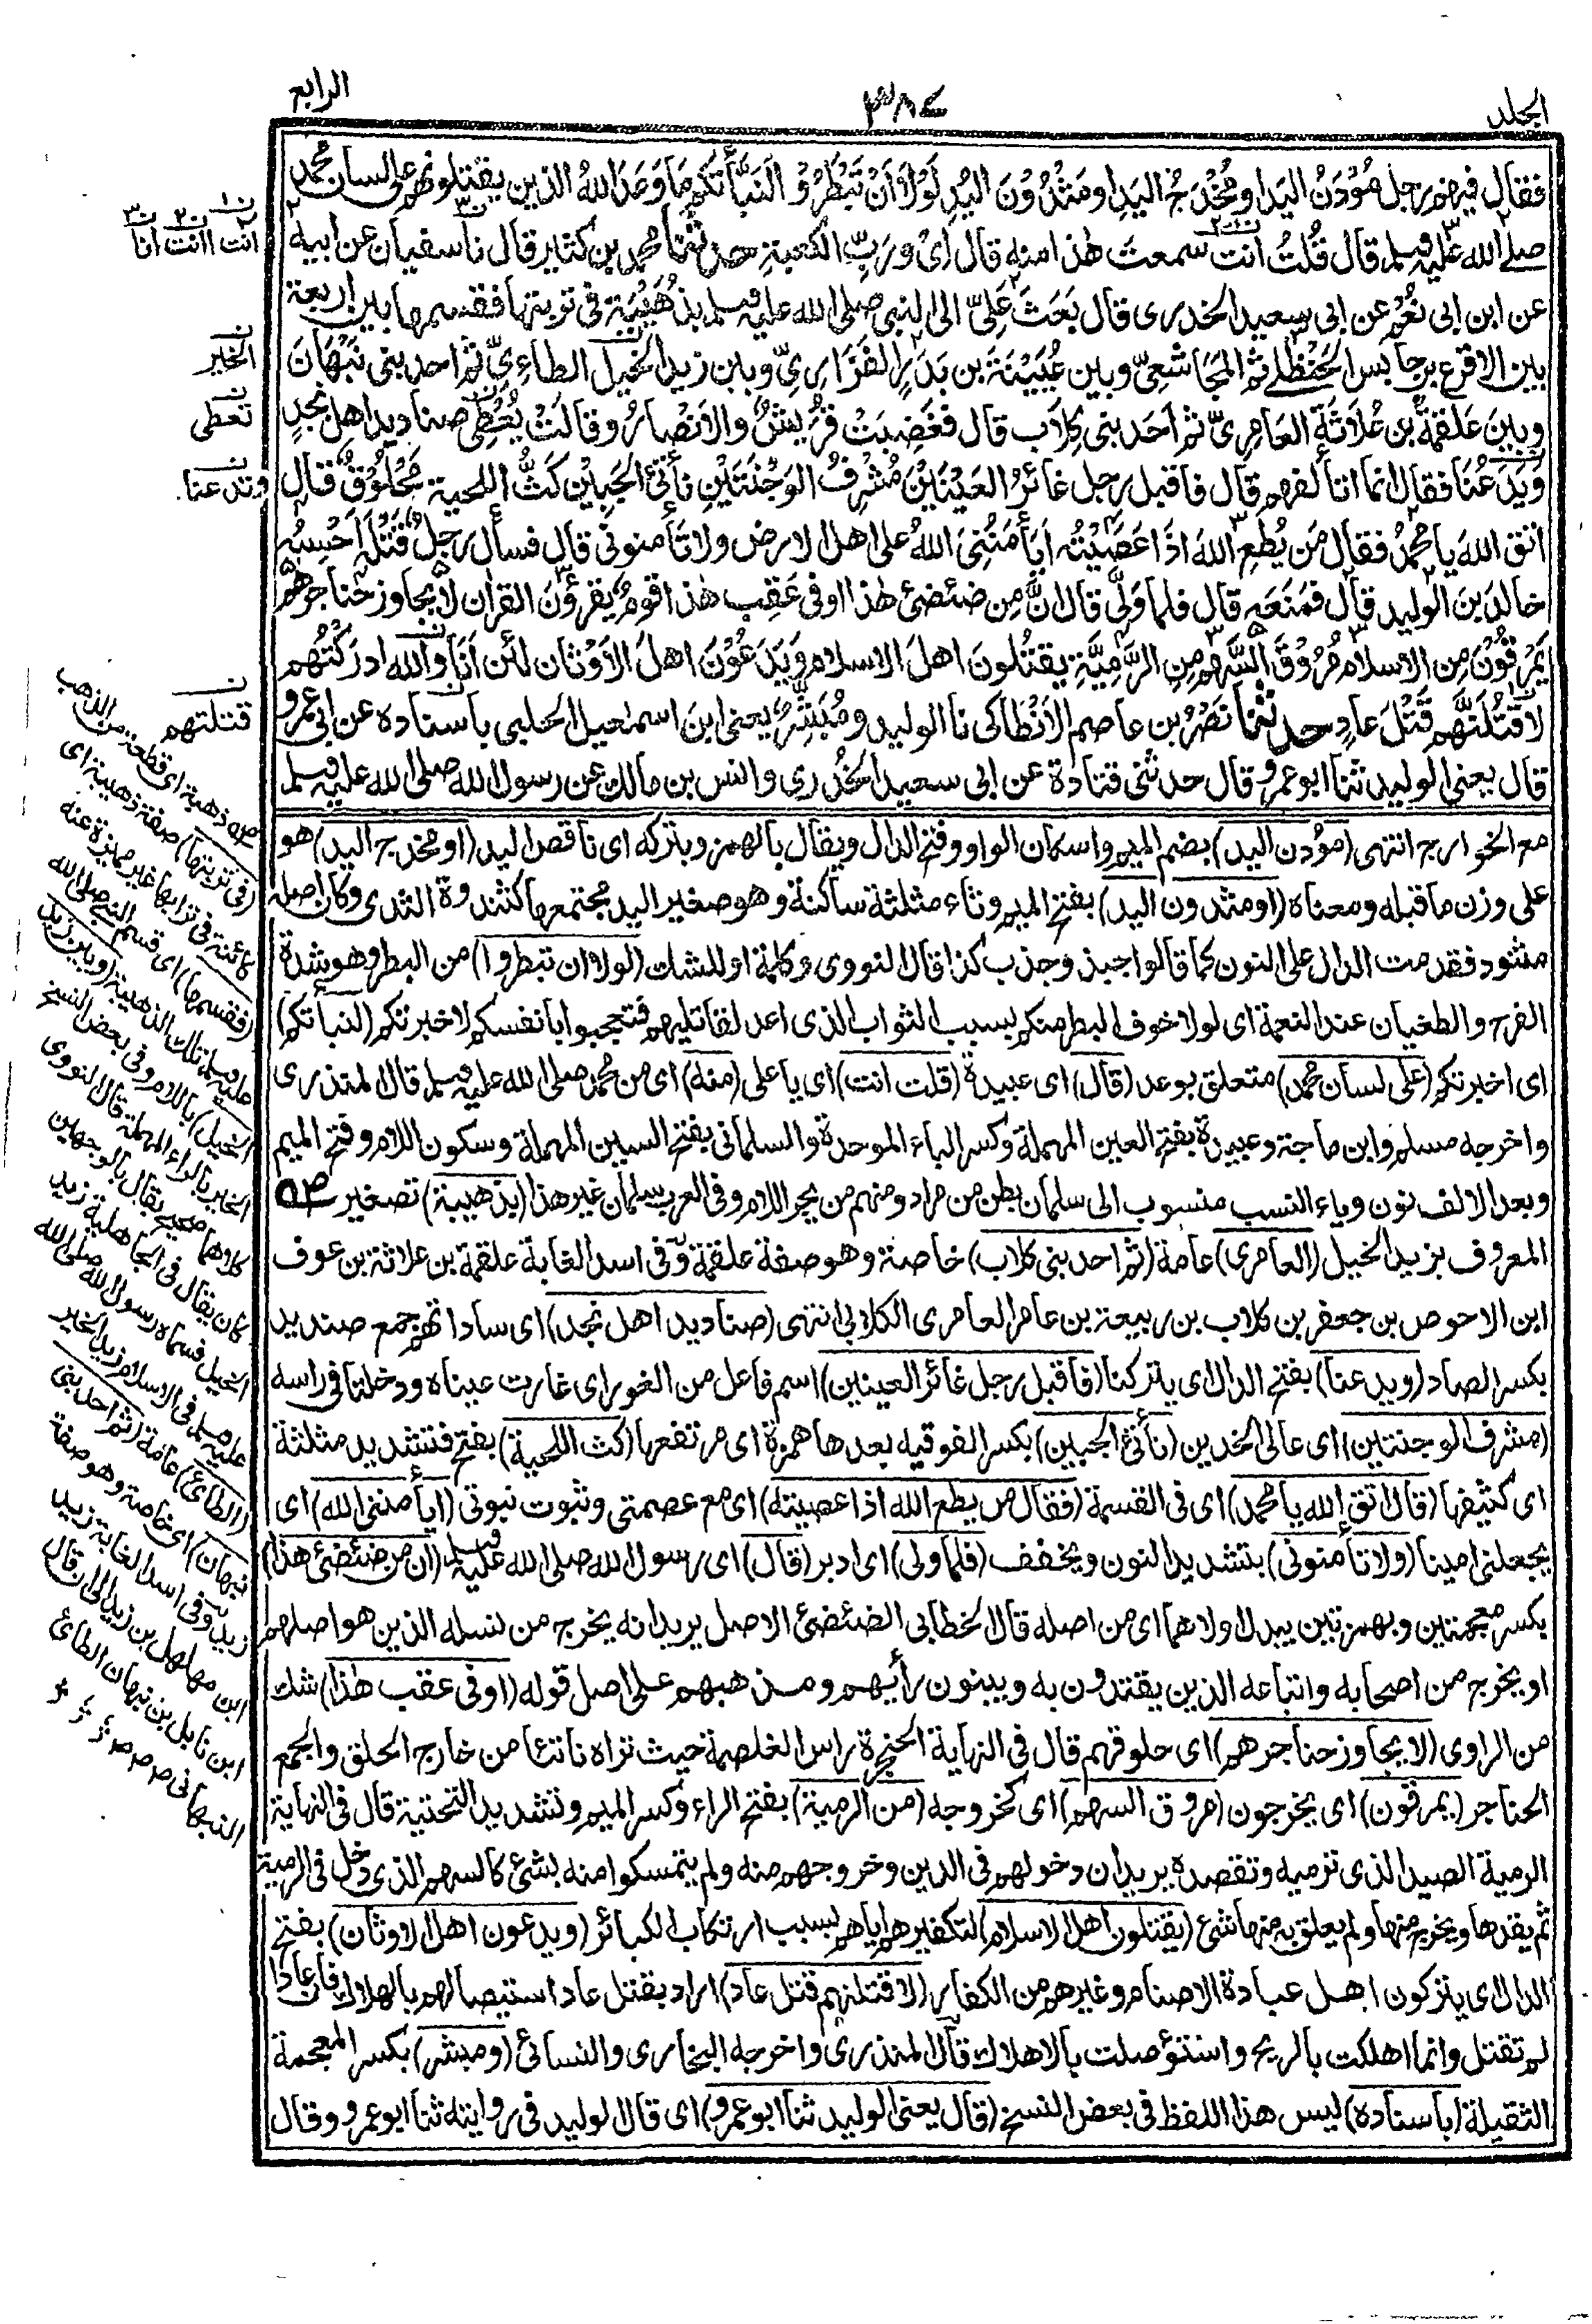 الجلد
٣٨٧
الرابع
فقال فيهم رجل مُوْدَنُ اليَدِ او مُخْدَجُ اليَدِ او مَثْدُوْنَ اليَدِ لَوْلَا اَنْ تَبْطَرُوْا لَنَبَّأْتُكُم مَا وَعَدَ اللهُ الذين يقتلونهم على لسان محمد
صلى الله عليه وسلم قال قُلْتُ انت سمعتَ هٰذا منه قال اىْ ورَبِّ الكعبةِ حدثنا محمد بن كثير قال نا سفيان عن ابيه
عن ابن ابى نُعْم عن ابى سعيد الخدرى قال بَعَثَ عَلِىٌّ الى النبى صلى الله عليه وسلم بذُهَيْبَة فى تربتها فقسمها بين اربعة
بين الاقرع بن حابس الحنظلى ثم المجاشعىِّ وبين عُيَيْنَةَ بن بَدْرٍ الفَزَارِىِّ وبين زيد الخيل الطاءِىِّ ثم احد بنى نَبْهَانَ
وبين عَلقَمَة بن عُلَاثَةَ العَامِرِىِّ ثم اَحَد بنى كِلَاب قال فغَضِبَتْ قُرَيْشٌ والاَنْصارُ وقالتْ يُعْطِى صناديد اهل نجدٍ
ويَدَعُنَا فقال انما اتألفهم قال فاقبل رجل غائرُ العَيْنَيْنِ مُشْرِفُ الوَجْنَتَيْنِ نأتئ الجَبِيْنِ كَثُّ اللحية مَحْلُوْقٌ قال
اتق اللهَ يا محمدُ فقال مَن يُطِعِ اللهَ اذَا عَصَيْتُه اَيَأمَنُنِىَ اللهُ على اهل الارض ولا تَأمنونى قال فسأل رجلٌ قَتْلَه اَحْسِبُه
خالدَ بنَ الوليد قال فمَنَعَه قال فلما وَلَّى قال انَّ مِن ضئضئ هٰذا او فى عَقِب هٰذا قوم يقرؤُنَ القرأن لا يجاوز حناجرهم
يَمْرقُوْنَ مِن الاسلام مُرُوْقَ السَّهمِ مِن الرَّمِيَّةِ يقتُلونَ اهلَ الاسلام ويَدَعُوْنَ اهلَ الاَوْثان لئن اَنَا والله ادركْتُهم
لاَقتُلَنَّهم قَتْلَ عادٍ حدثنا نَصْرُ بن عاصم الاَنْطَاكى نا الوليد ومُبَشِّرٌ يعنى ابنَ اسمٰعيل الحلبى باسناده عن ابى عمرو
قال يعنى الوليد ثنا ابو عمرو قال حدثنى قتادة عن ابى سعيد الخُدْرى وانس بن مالك عن رسول الله صلى الله عليه وسلم
مع الخوارج انتهى (مؤدن اليد) بضم الميم واسكان الواو وفتح الدال ويقال بالهمز وبتركه اى ناقص اليد (او مخدج اليد) هو
على وزن ما قبله ومعناه (او مثدون اليد) بفتح الميم وثاء مثلثة ساكنة وهو صغير اليد مجتمعها كثندوة الثدى وكان اصله
مثنود فقدمت الدال على النون كما قالوا جبذ وجذب كذا قال النووى وكلمة او للشك (لولا ان تبطروا) من البطر وهو شدة
الفرح والطغيان عند النعمة اى لولا خوف البطر منكم بسبب الثواب الذى اعد لقاتليهم فتعجبوا بانفسكم لاخبرتكم (لنبأتكم)
اى اخبرتكم (على لسان محمد) متعلق بوعد (قال) اى عبيدة (قلت انت) اى يا على (منه) اى من محمد صلى الله عليه وسلم قال المنذرى
واخرجه مسلم وابن ماجة وعبيدة بفتح العين المهملة وكسر الباء الموحدة والسلمانى بفتح السين المهملة وسكون اللام وفتح الميم
وبعد الالف نون وياء النسب منسوب الى سلمان بطن من مراد ومنهم من يحر اللام وفى العرب سلمان غير هذا (بذهيبة) تصغير
المعروف بزيد الخيل (العامرى) عامة (ثم احد بنى كلاب) خاصة وهو صفة علقمة وفى اسد الغابة علقمة بن علاثة بن عوف
ابن الاحوص بن جعفر بن كلاب بن ربيعة بن عامر العامرى الكلابى انتهى (صناديد اهل نجد) اى ساداتهم جمع صنديد
بكسر الصاد (ويدعنا) بفتح الدال اى يتركنا (فاقبل رجل غائر العينين) اسم فاعل من الغور اى غارت عيناه ودخلتا فى راسه
(مشرف الوجنتين) اى عالى الخدين (نأتئ الجبين) بكسر الفوقيه بعدها همزة اى مرتفعها (كث اللحية) بفتح فتشديد مثلثة
اى كثيفها (قال اتق الله يا محمد) اى فى القسمة (فقال من يطع الله اذا عصيته) اى مع عصمتى وثبوت نبوتى (ايأمننى الله) اى
يجعلنى امينا (ولا تأمنونى) بتشديد النون ويخفف (فلما ولى) اى ادبر (قال) اى رسول الله صلى الله عليه وسلم (ان من ضئضئ هذا)
بكسر معجمتين وبهمزتين يبدل اولاهما اى من اصله قال الخطابى الضئضئ الاصل يريد انه يخرج من نسله الذين هو اصلهم
او يخرج من اصحابه واتباعه الذين يقتدون به ويبنون رأيهم ومذهبهم على اصل قوله (او فى عقب هٰذا) شك
من الراوى (لا يجاوز حناجرهم) اى حلوقهم قال فى النهاية الحنجرة راس الغلصمة حيث تراه ناتئا من خارج الحلق والجمع
الحناجر (يمرقون) اى يخرجون (مروق السهم) اى كخروجه (من الرمية) بفتح الراء وكسر الميم وتشديد التحتية قال فى النهاية
الرمية الصيد الذى ترميه وتقصده يريد ان دخولهم فى الدين وخروجهم منه ولم يتمسكوا منه بشئ كالسهم الذى دخل فى الرمية
ثم يقدها ويخرج منها ولم يعلق به منها شئ (يقتلون اهل الاسلام) لتكفيرهم اياهم بسبب ارتكاب الكبائر (ويدعون اهل الاوثان) بفتح
الدال اى يتركون اهل عبادة الاصنام وغيرهم من الكفار (لاقتلنهم قتل عاد) اراد بقتل عاد استيصالهم بالهلاك فان عادا
لم تقتل وانما اهلكت بالريح واستؤصلت بالاهلاك قال المنذرى واخرجه البخارى والنسائى (ومبشر) بكسر المعجمة
الثقيلة (باسناده) ليس هذا اللفظ فى بعض النسخ (قال يعنى الوليد ثنا ابو عمرو) اى قال الوليد فى روايته ثنا ابو عمرو وقال
انت اانت انا
الخير
تعطى
وتدعنا
قتلتهم
ذهبة اى قطعة من الذهب
(فى تربتها) صفة ذهيبة اى
كائنة فى ترابها غير مميزة عنه
(فقسمها) اى قسم النبى صلى الله
عليه وسلم تلك الذهيبة (وبين زيد
الخيل) باللام وفى بعض النسخ
الخير بالراء المهملة قال النووى
كلاهما صحيح يقال بالوجهين
كان يقال فى الجاهلية زيد
الخيل فسماه رسول الله صلى الله
عليه وسلم فى الاسلام زيد الخير
(الطائى) عامة (ثم احد بنى
نبهان) اى خاصة وهو صفة
زيد وفى اسد الغابة زيد
ابن مهلهل بن زيد الى ان قال
ابن نابل بن نبهان الطائى
النبهانى